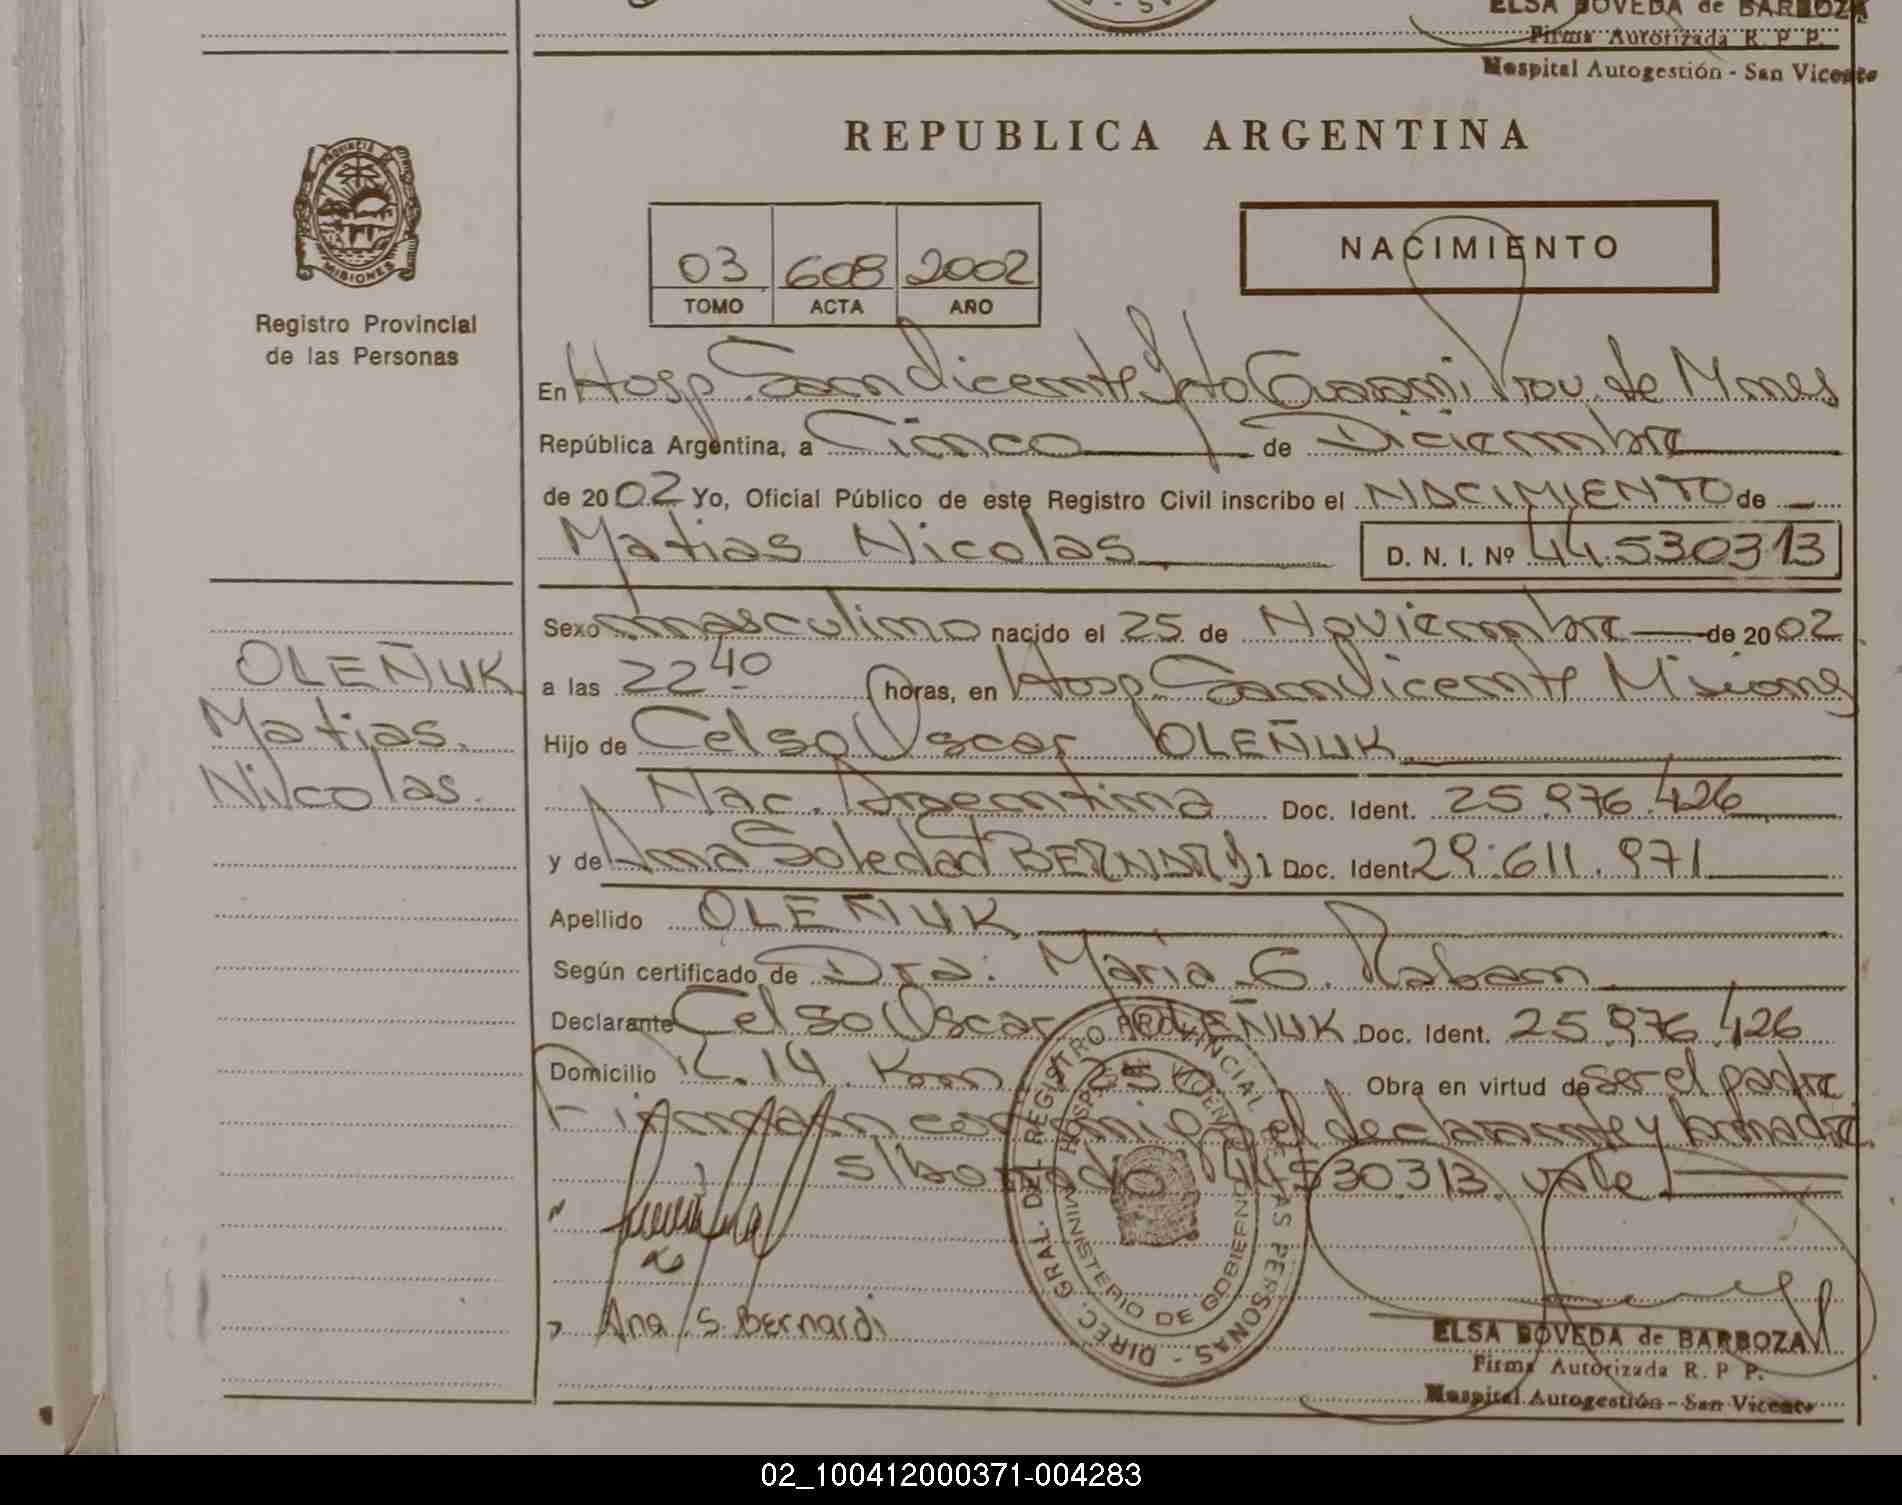 ELSA BOVEDA de BARBOZA
Firma Autorizada R. P. P.
Hospital Autogestión - San Vicente
PROVINCIA DE
MISIONES
Registro Provincial
de las Personas
REPUBLICA ARGENTINA
03 608 2002
TOMO ACTA AÑO
NACIMIENTO
En Hosp. San Vicente Dpto Guarani Prov. de Mnes
República Argentina, a Cinco de Diciembre
de 2002 Yo, Oficial Público de este Registro Civil inscribo el NACIMIENTO de
Matias Nicolas D. N. I. Nº 44.530313
Sexo masculino nacido el 25 de Noviembre de 2002
a las 22 40 horas, en Hosp. San Vicente Misiones
Hijo de Celso Oscar OLEÑUK
Nac. Argentina Doc. Ident. 25.976.426
y de Ana Soledad BERNARDI Doc. Ident. 29.611.971
Apellido OLEÑUK
Según certificado de Dra. Maria G. Raban
Declarante Celso Oscar OLEÑUK Doc. Ident. 25.976.426
Domicilio R. 14. Km 1250 Obra en virtud de ser el padre
Firman conmigo el declarante y la madre
s/borrado 44530313 vale
Ana S. Bernardi
OLEÑUK
Matias.
Nicolas.
DIREC. GRAL. DEL REGISTRO PROVINCIAL DE LAS PERSONAS -
HOSP. SAN VICENTE
MINISTERIO DE GOBIERNO
ELSA BOVEDA de BARBOZA
Firma Autorizada R. P. P.
Hospital Autogestión - San Vicente
02_100412000371-004283